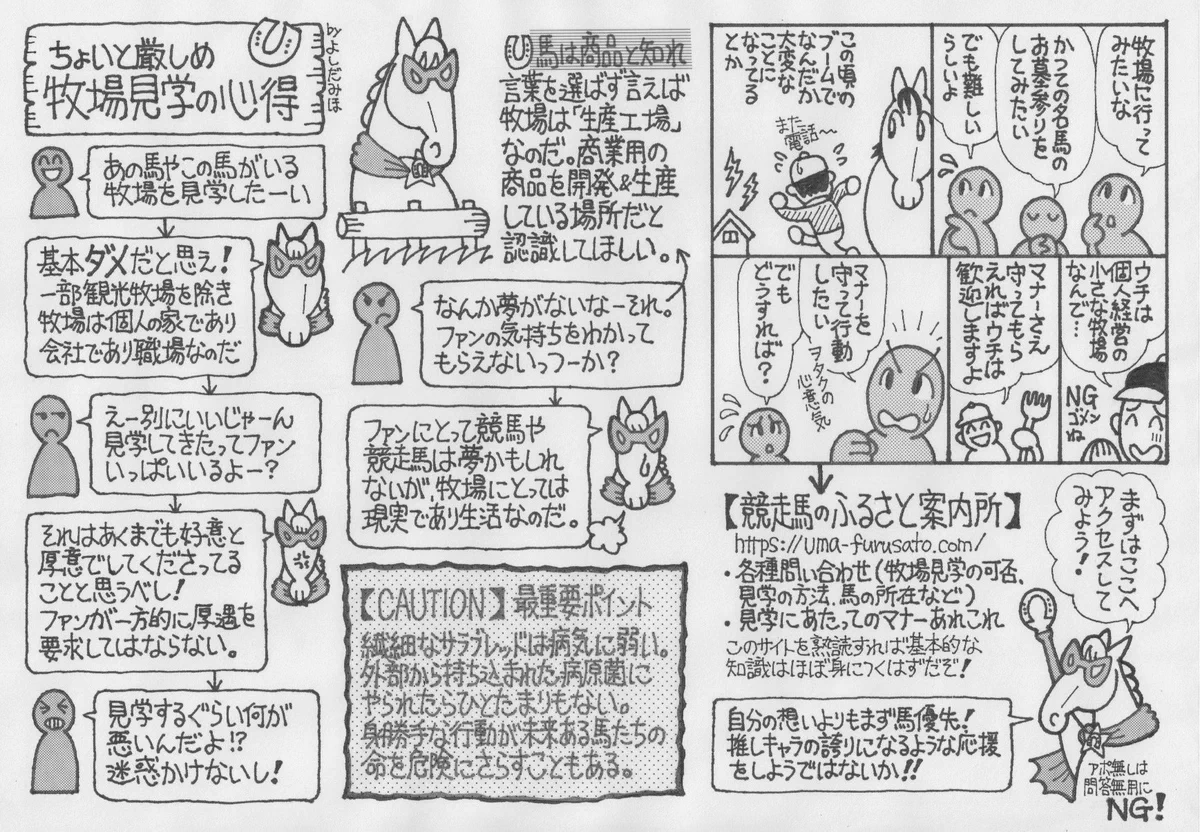 ちょいと厳しめ
牧場見学の心得
byよしだみほ
あの馬やこの馬がいる
牧場を見学したーい
基本ダメだと思え!
一部観光牧場を除き
牧場は個人の家であり
会社であり職場なのだ
えー別にいいじゃーん
見学してきたってファン
いっぱいいるよー?
それはあくまでも好意と
厚意でしてくださってる
ことと思うべし!
ファンが一方的に厚遇を
要求してはならない。
見学するぐらい何が
悪いんだよ!?
迷惑かけないし!
馬は商品と知れ
言葉を選ばず言えば
牧場は「生産工場」
なのだ。商業用の
商品を開発&生産
している場所だと
認識してほしい。
なんか夢がないなーそれ。
ファンの気持ちをわかって
もらえないっつーか?
ファンにとって競馬や
競走馬は夢かもしれ
ないが、牧場にとっては
現実であり生活なのだ。
【CAUTION】最重要ポイント
繊細なサラブレッドは病気に弱い。
外部から持ち込まれた病原菌に
やられたらひとたまりもない。
身勝手な行動が未来ある馬たちの
命を危険にさらすこともある。
牧場に行って
みたいな
かつての名馬の
お墓参りを
してみたい
でも難しい
らしいよ
この頃の
ブームで
なんだか
大変な
ことに
なってる
とか
また
電話~
ウチは
個人経営の
小さな牧場
なんで…
NG
ゴメン
ね
マナーさえ
守ってもら
えればウチは
歓迎しますよ
マナーを
守って行動
したい
ヲタクの
心意気
でも
どうすれば?
【競走馬のふるさと案内所】
https://uma-furusato.com/
・各種問い合わせ(牧場見学の可否、
見学の方法、馬の所在など)
・見学にあたってのマナーあれこれ
このサイトを熟読すれば基本的な
知識はほぼ身につくはずだぞ!
まずはここへ
アクセスして
みよう!
自分の想いよりもまず馬優先!
推しキャラの誇りになるような応援
をしようではないか!!
アポ無しは
問答無用に
NG!